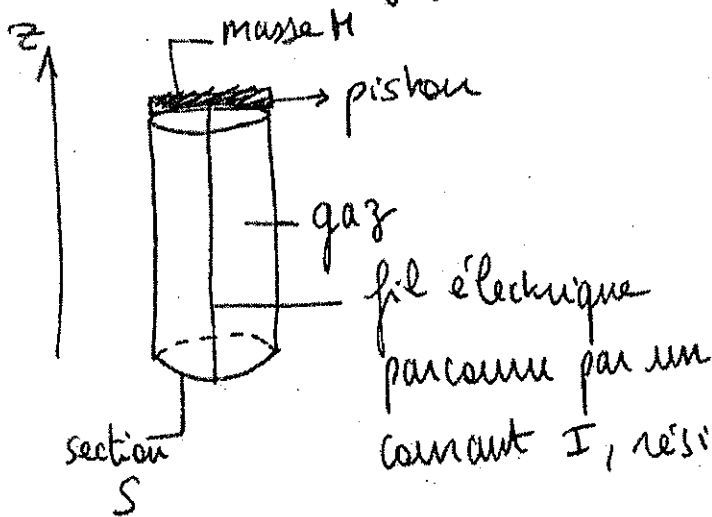 z
masse M
piston
gaz
fil électrique
parcouru par un
courant I, rési
section
S